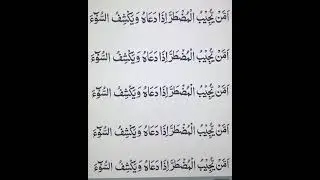 اَمَّنْ يُّجِيْبُ الْمُضْطَرَّ اِذَا دَعَاهُ وَيَكْشِفُ السُّوْٓءَ
اَمَّنْ يُّجِيْبُ الْمُضْطَرَّ اِذَا دَعَاهُ وَيَكْشِفُ السُّوْٓءَ
اَمَّنْ يُّجِيْبُ الْمُضْطَرَّ اِذَا دَعَاهُ وَيَكْشِفُ السُّوْٓءَ
اَمَّنْ يُّجِيْبُ الْمُضْطَرَّ اِذَا دَعَاهُ وَيَكْشِفُ السُّوْٓءَ
اَمَّنْ يُّجِيْبُ الْمُضْطَرَّ اِذَا دَعَاهُ وَيَكْشِفُ السُّوْٓءَ